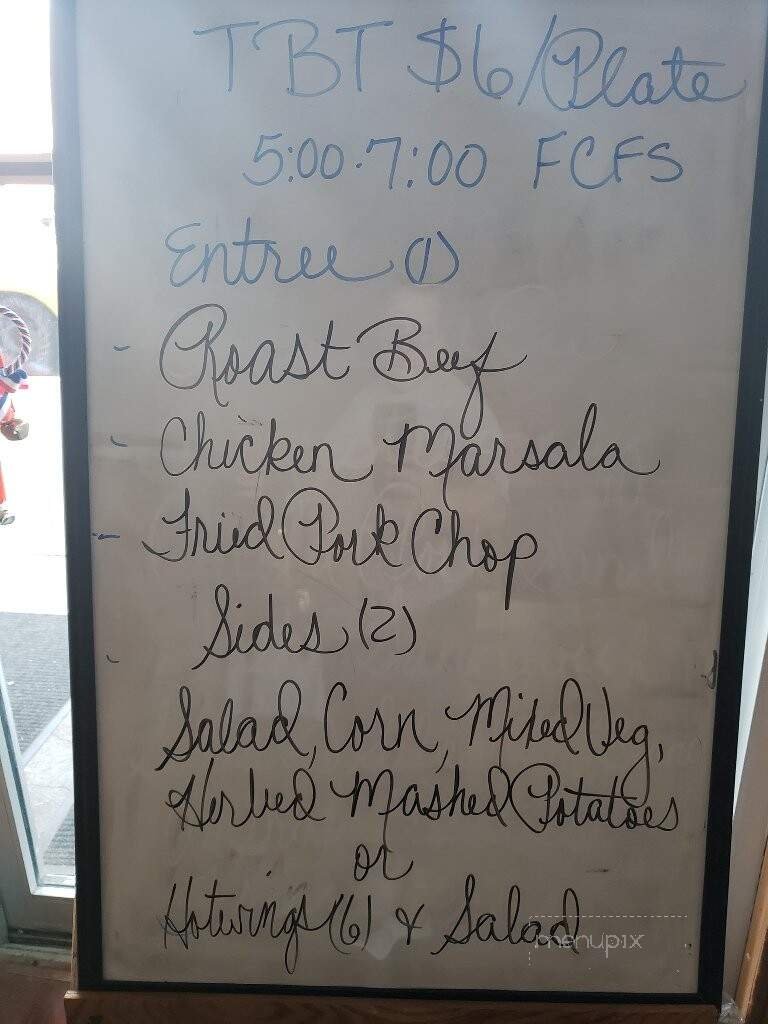 TBT $6/Plate
5:00-7:00 FCFS
Entree (1)
- Roast Beef
- Chicken Marsala
- Fried Pork Chop
Sides (2)
Salad, Corn, Mixed Veg,
Herbed Mashed Potatoes
or
Hotwings (6) & Salad
menupix